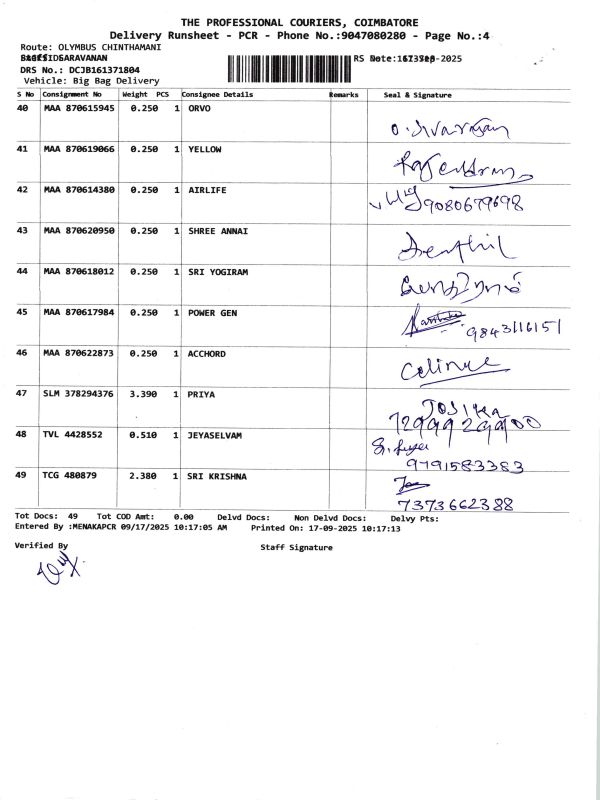 THE PROFESSIONAL COURIERS, COIMBATORE
Delivery Runsheet - PCR - Phone No.:9047080280 - Page No.:4
Route: OLYMBUS CHINTHAMANI
SARAVANAN
RS Date: Sep-2025
DRS No.: DCJB161371804
Vehicle: Big Bag Delivery
S No Consignment No Weight PCS Consignee Details Remarks Seal & Signature
40 MAA 870615945 0.250 1 ORVO O. Sivarajan
41 MAA 870619066 0.250 1 YELLOW Rajendran
42 MAA 870614380 0.250 1 AIRLIFE 9080679698
43 MAA 870620950 0.250 1 SHREE ANNAI Senthil
44 MAA 870618012 0.250 1 SRI YOGIRAM
45 MAA 870617984 0.250 1 POWER GEN 9843116151
46 MAA 870622873 0.250 1 ACCHORD
47 SLM 378294376 3.390 1 PRIYA
7299929900
48 TVL 4428552 0.510 1 JEYASELVAM
9791583383
49 TCG 480879 2.380 1 SRI KRISHNA
7373662388
Tot Docs: 49 Tot COD Amt: 0.00 Delvd Docs: Non Delvd Docs: Delvy Pts:
Entered By :MENAKAPCR 09/17/2025 10:17:05 AM Printed On: 17-09-2025 10:17:13
Verified By Staff Signature